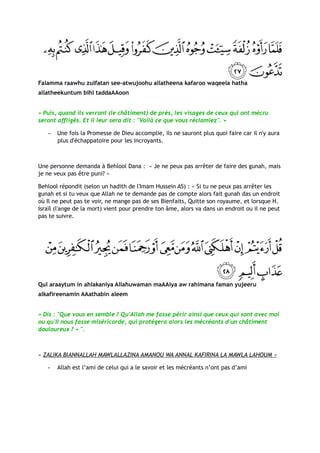 فَلَمَّا رَأَوْهُ زُلْفَةً سِيئَتْ وُجُوهُ الَّذِينَ كَفَرُوا وَقِيلَ هَٰذَا الَّذِي كُنتُم بِهِ
تَدَّعُونَ ٢٧
Falamma raawhu zulfatan see-atwujoohu allatheena kafaroo waqeela hatha
allatheekuntum bihi taddaAAoon
« Puis, quand ils verront (le châtiment) de près, les visages de ceux qui ont mécru
seront affligés. Et il leur sera dit : "Voilà ce que vous réclamiez". »
- Une fois la Promesse de Dieu accomplie, ils ne sauront plus quoi faire car il n'y aura
plus d'échappatoire pour les incroyants.
Une personne demanda à Behlool Dana : « Je ne peux pas arrêter de faire des gunah, mais
je ne veux pas être puni? »
Behlool répondit (selon un hadith de l'Imam Hussein AS) : « Si tu ne peux pas arrêter les
gunah et si tu veux que Allah ne te demande pas de compte alors fait gunah das un endroit
où Il ne peut pas te voir, ne mange pas de ses Bienfaits, Quitte son royaume, et lorsque H.
Israïl (l'ange de la mort) vient pour prendre ton âme, alors va dans un endroit ou il ne peut
pas te suivre.
قُلْ أَرَأَيْتُمْ إِنْ أَهْلَكَنِيَ اللَّهُ وَمَن مَّعِيَ أَوْ رَحِمَنَا فَمَن يُجِيرُ الْكَافِرِينَ مِنْ
عَذَابٍ أَلِيمٍ ٢٨
Qul araaytum in ahlakaniya Allahuwaman maAAiya aw rahimana faman yujeeru
alkafireenamin AAathabin aleem
« Dis : "Que vous en semble ? Qu'Allah me fasse périr ainsi que ceux qui sont avec moi
ou qu'Il nous fasse miséricorde, qui protégera alors les mécréants d'un châtiment
douloureux ? » ".
« ZALIKA BIANNALLAH MAWLALLAZINA AMANOU WA ANNAL KAFIRINA LA MAWLA LAHOUM »
- Allah est l'ami de celui qui a le savoir et les mécréants n'ont pas d'ami